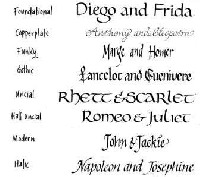 Foundational Diego and Frida
Copperplate Anthony and Cleopatra
Funky Marge and Homer
Gothic Lancelot and Guenivere
Uncial Rhett & Scarlet
Half Uncial Romeo & Juliet
Modern John & Jackie
Italic Napoleon and Josephine